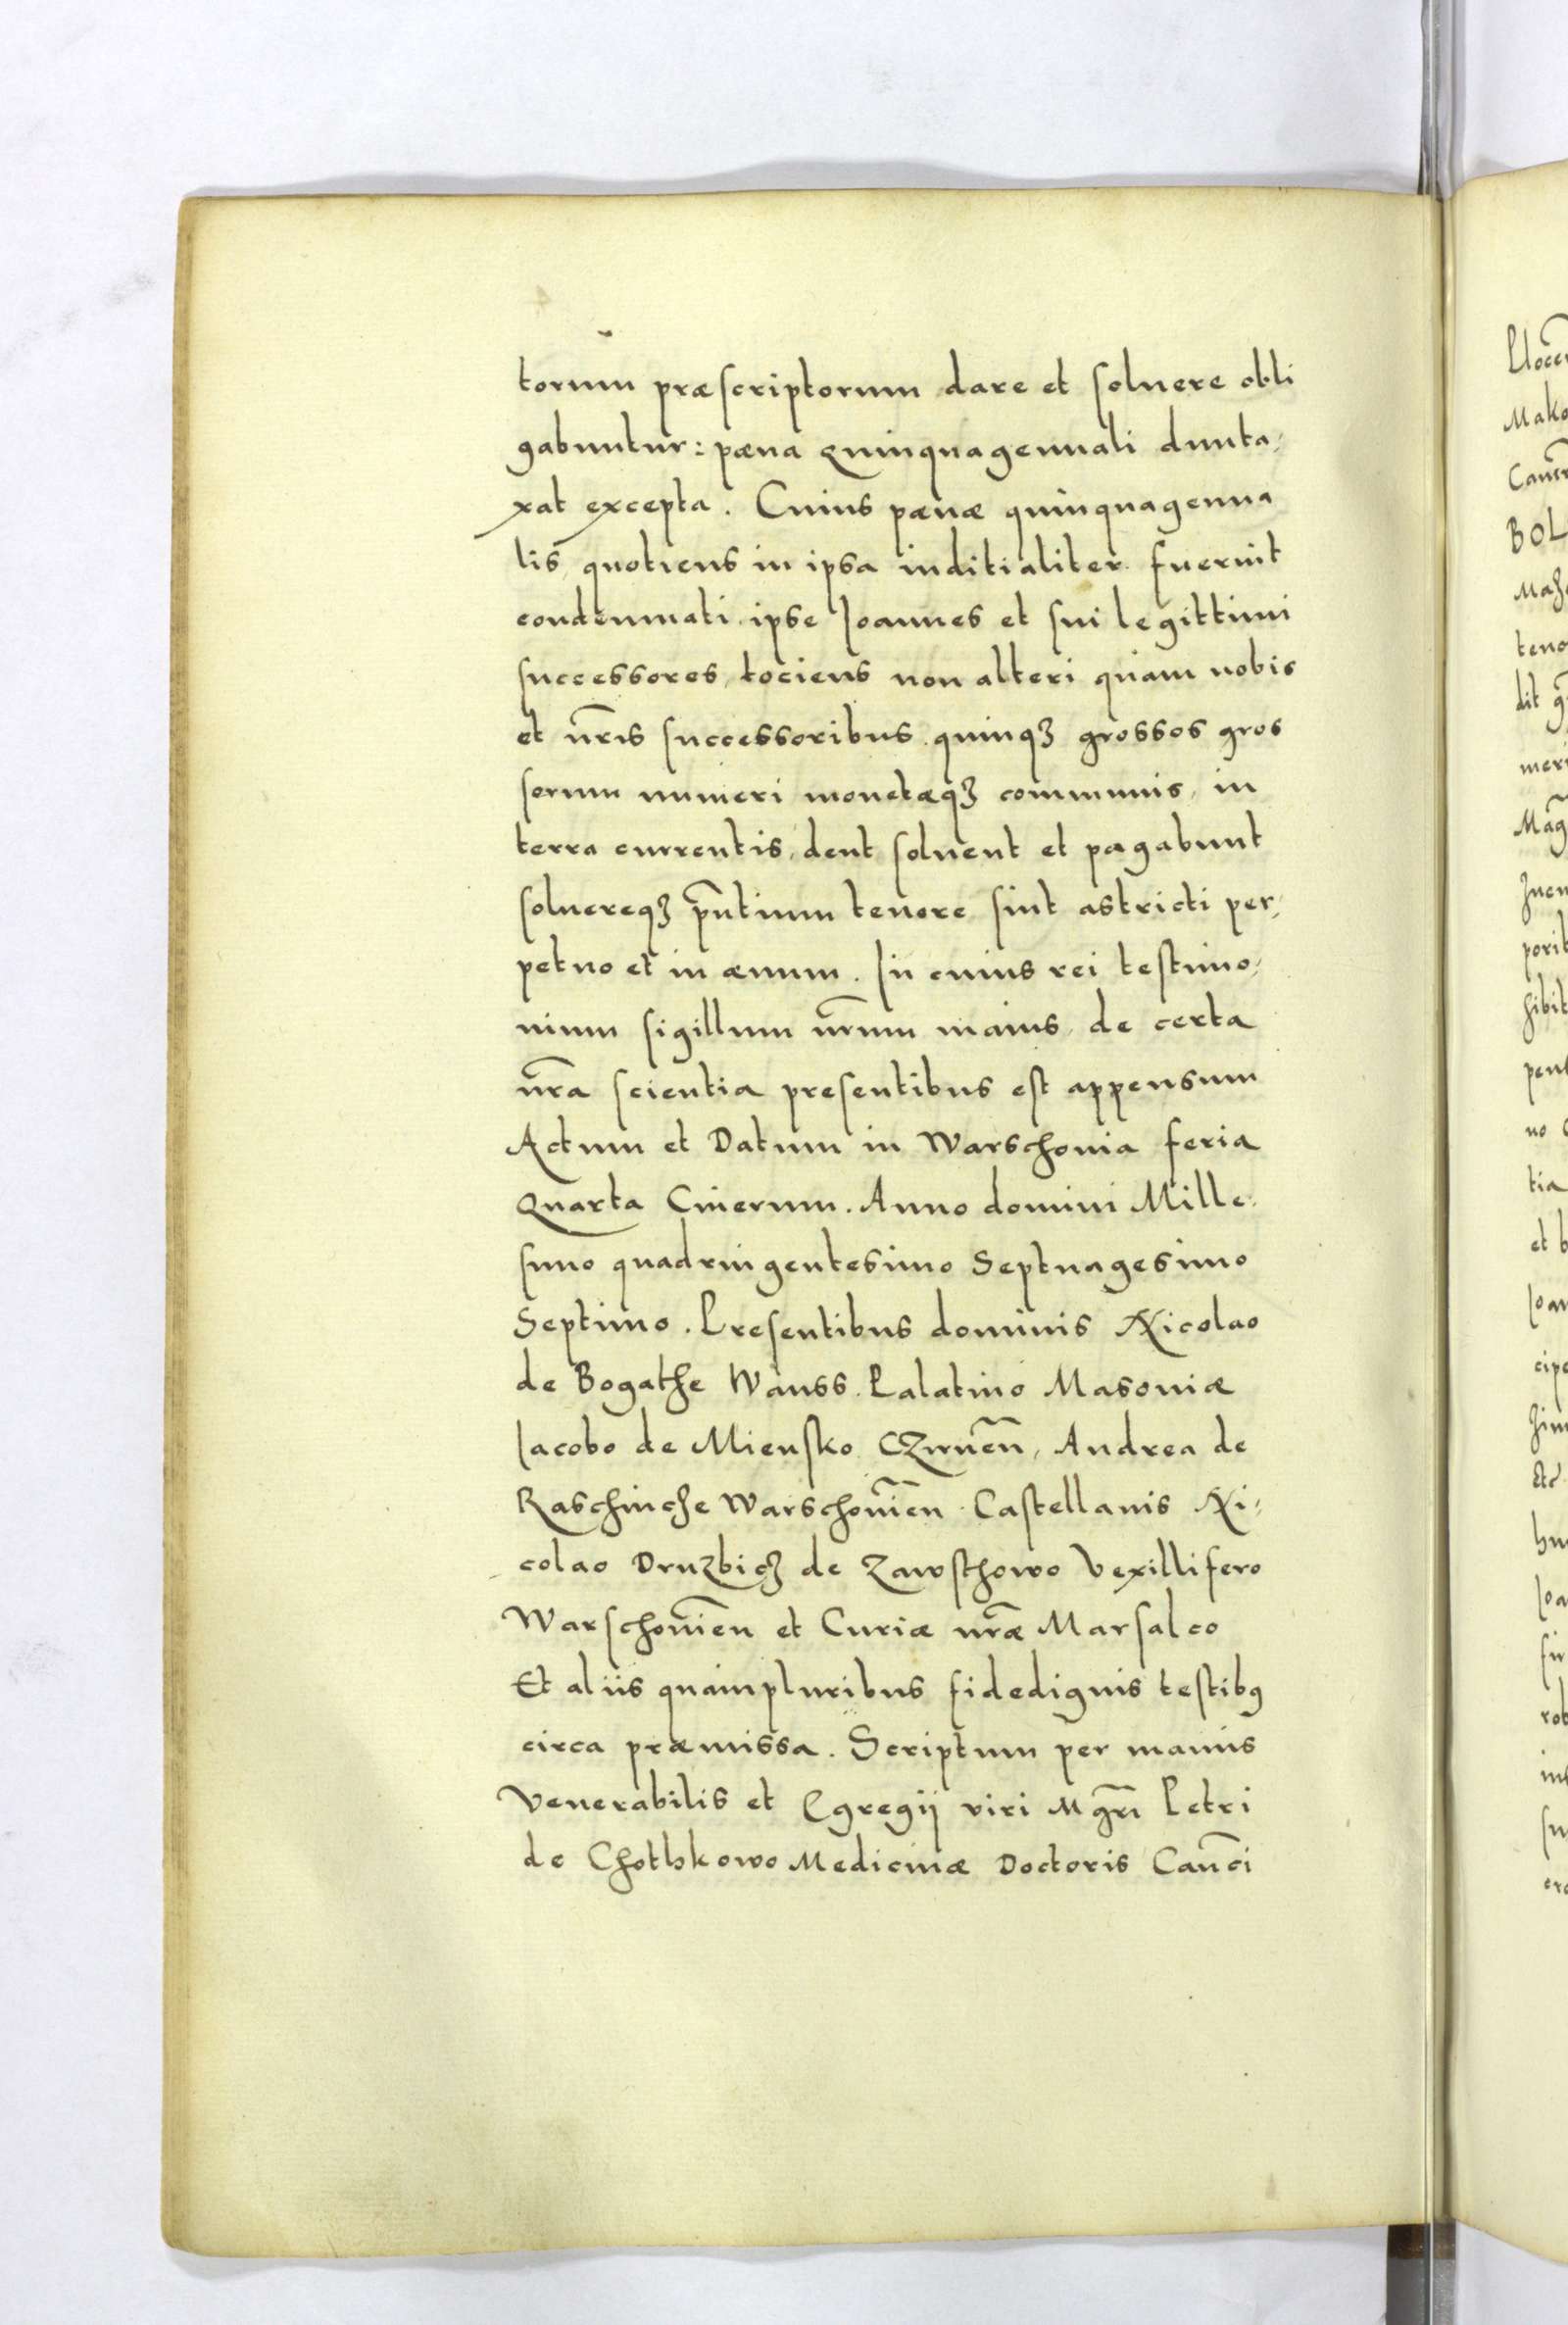 torum præscriptorum dare et soluere obli
gabuntur: pæna quinquagennali dunta-
xat excepta. Cuius pænæ quinquagenna
lis quotiens in ipsa inditialiter fuerint
condemnati ipse Ioannes et sui legittimi
successores, tociens non alteri quam nobis
et nr̄is successoribus quinqꝫ grossos gros
sorum numeri monetæqꝫ communis, in
terra currentis, dent soluent et pagabunt
soluereqꝫ p̄ntium tenore sint astricti per-
petuo et in æuum. In cuius rei testimo-
nium sigillum nr̄um maius de certa
nr̄a scientia presentibus est appensum
Actum et Datum in Warschouia feria
Quarta Cinerum. Anno domini Mille-
simo quadringentesimo Septuagesimo
Septimo. Presentibus dominis Nicolao
de Bogathe Wanss. Palatino Masouiæ
Iacobo de Miensko CZirnen̄, Andrea de
Raschinche Warschouien̄ Castellanis Ni-
colao Druzbicꝫ de Zawsthowo Vexillifero
Warschouien̄ et Curiæ nr̄æ Marsalco
Et aliis quampluribus fidedignis testibꝯ
circa præmissa. Scriptum per manus
Venerabilis et Egregij viri Mgr̄i Petri
de Chothkowo Medicinæ Doctoris Can̄ci
Plocen
Mako
BOL
teno